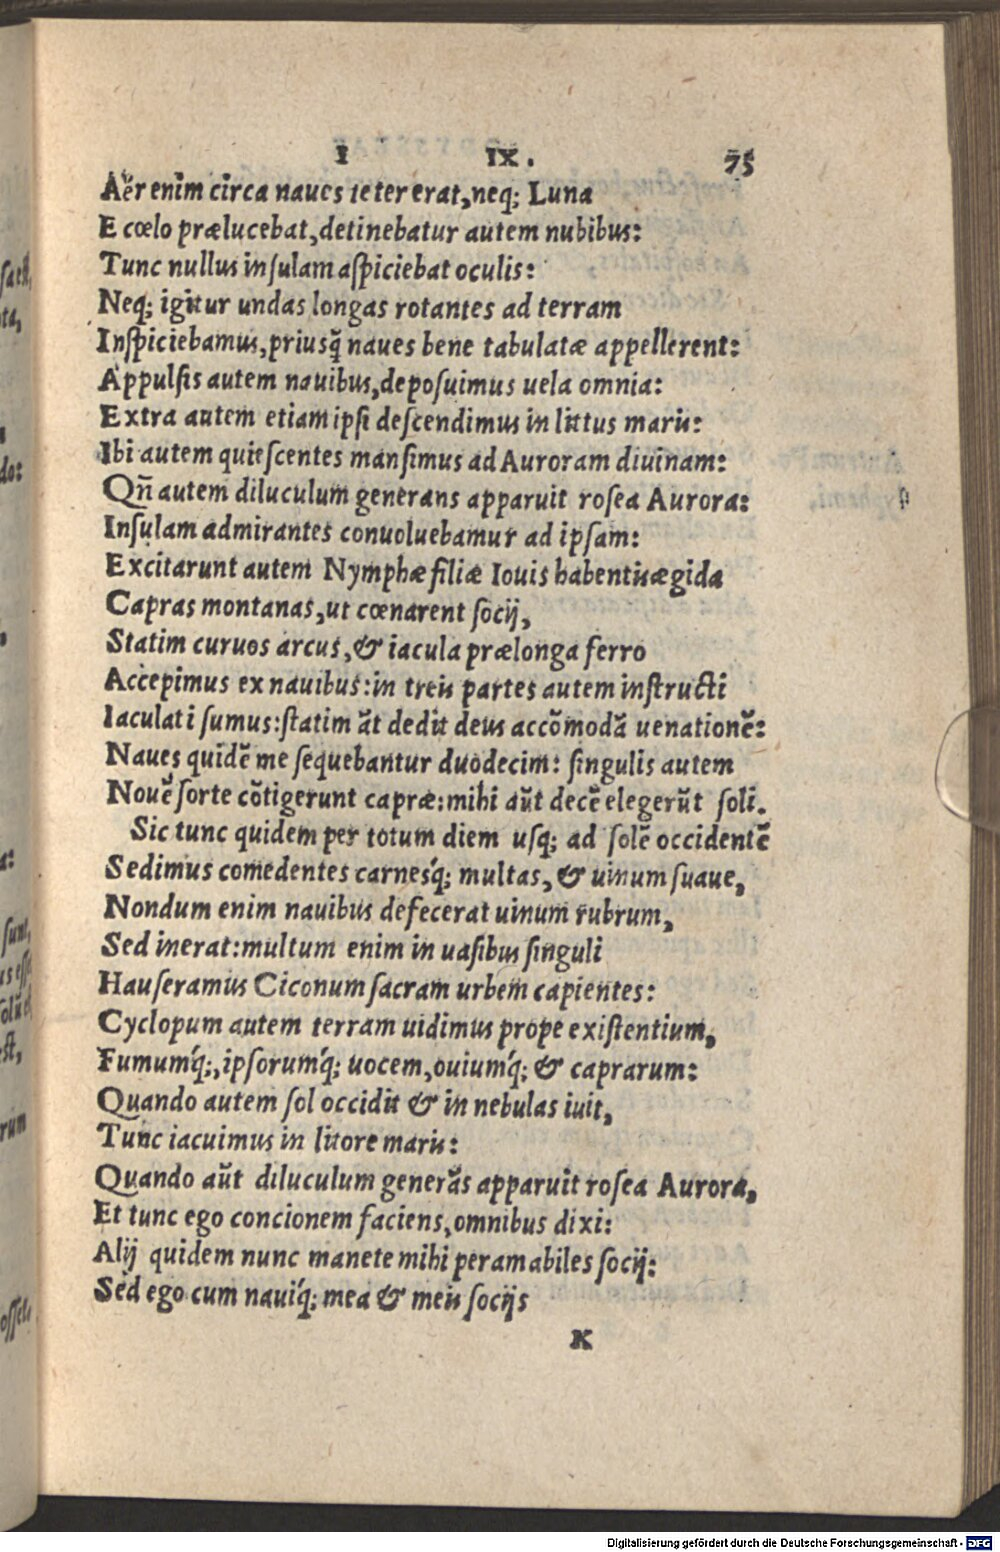 I IX. 75
Aër enim circa naues teter erat, neq; Luna
E cœlo prælucebat, detinebatur autem nubibus:
Tunc nullus insulam aspiciebat oculis:
Neq; igitur undas longas rotantes ad terram
Inspiciebamus, priusq̃ naues bene tabulatæ appellerent:
Appulsis autem nauibus, deposuimus uela omnia:
Extra autem etiam ipsi descendimus in littus maris:
Ibi autem quiescentes mansimus ad Auroram diuinam:
Qñ autem diluculum generans apparuit rosea Aurora:
Insulam admirantes conuoluebamur ad ipsam:
Excitarunt autem Nymphæ filiæ Iouis habentis ægida
Capras montanas, ut cœnarent socij,
Statim curuos arcus, & iacula prælonga ferro
Accepimus ex nauibus: in treis partes autem instructi
Iaculati sumus: statim ãt dedit deus accõmodã uenationẽ:
Naues quidẽ me sequebantur duodecim: singulis autem
Nouẽ sorte cõtigerunt capræ: mihi aũt decẽ elegerũt soli.
Sic tunc quidem per totum diem usq; ad solẽ occidentẽ
Sedimus comedentes carnesq́; multas, & uinum suaue,
Nondum enim nauibus defecerat uinum rubrum,
Sed inerat: multum enim in uasibus singuli
Hauseramus Ciconum sacram urbem capientes:
Cyclopum autem terram uidimus prope existentium,
Fumumq́;, ipsorumq́; uocem, ouiumq́; & caprarum:
Quando autem sol occidit & in nebulas iuit,
Tunc iacuimus in litore maris:
Quando aũt diluculum generãs apparuit rosea Aurora,
Et tunc ego concionem faciens, omnibus dixi:
Alij quidem nunc manete mihi peramabiles socij:
Sed ego cum nauiq́; mea & meis socijs
K
Digitalisierung gefördert durch die Deutsche Forschungsgemeinschaft - DFG